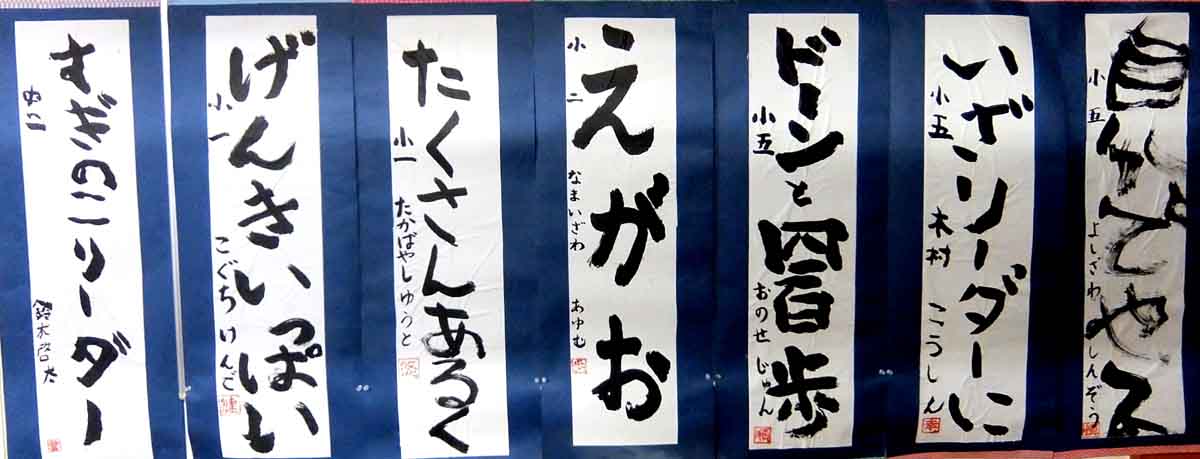 自分でやる
小五
よしざわ しんぞう
いざリーダーに
小五
木村 こうしん
ドーンと四百歩
小五
おのせ じゅん
えがお
小二
なまいざわ あゆむ
たくさんあるく
小一
たかばやしゆうと
げんきいっぱい
小一
こぐち けんご
すぎのこリーダー
中二
鈴木啓太